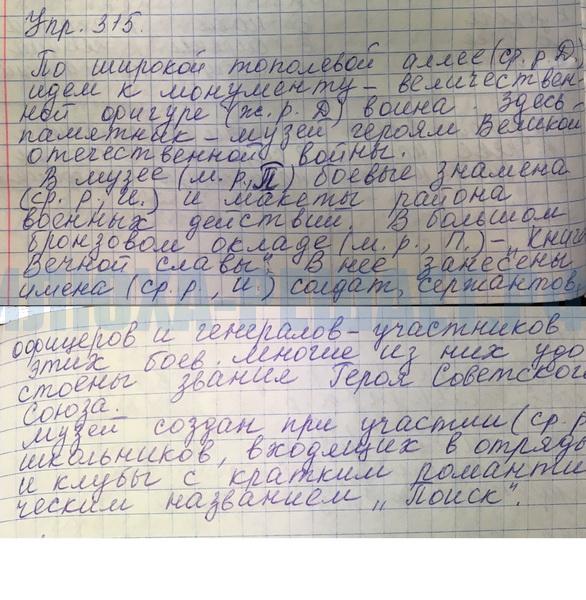 Упр. 315.
По широкой тополевой аллее (ср. р. Д.)
идем к монументу – величествен
ной фигуре (ж. р. Д) воина Здесь
памятник – музей героям Великой
отечественной войны.
В музее (м. р., П) боевые знамена
(ср. р, И.) и макеты района
военных действий. В большом
бронзовом окладе (м. р., П.) – „Книга
Вечной славы". В нее занесены
имена (ср. р, И.) солдат, сержантов,
офицеров и генералов – участников
этих боев. Многие из них удо
стоены звания Героя Советского
Союза.
Музей создан при участии (ср. р
школьников, входящих в отряды
и клубы с кратким романти
ческим названием „Поиск".